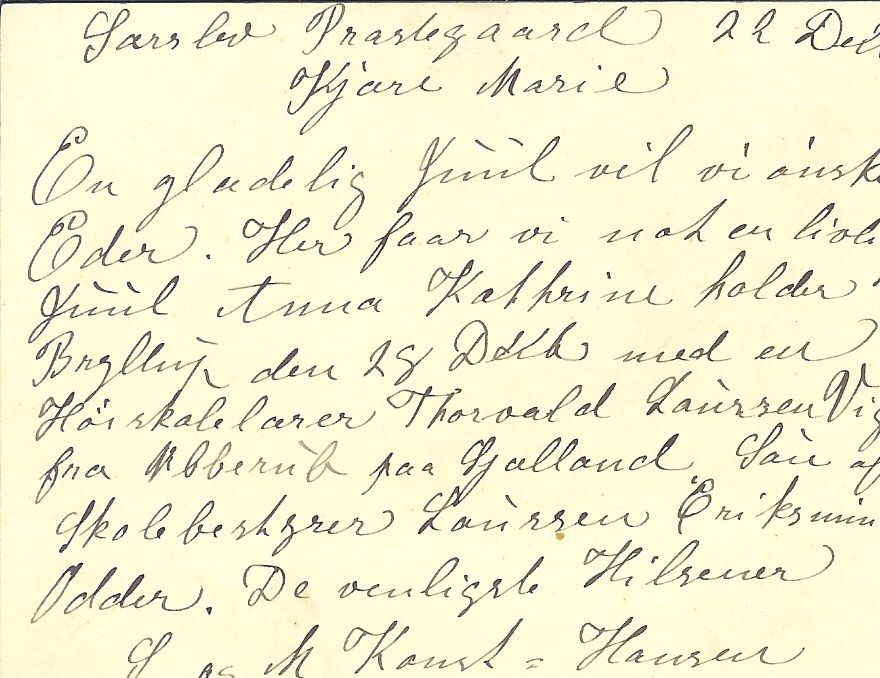 Særslev Præstegaard 22 De
Kjære Marie
En glædelig Juul vil vi ønsk
Eder. Her faar vi nok en livli
Juul Anna Kathrine holder
Bryllup den 28 Dcb med en
Høiskolelærer Thorvald Laursen Vig
fra Ubberub paa Sjælland Søn af
Skolebestyrer Laursen Eriksmin
Odder. De venligste Hilsener
S og M Konst = Hansen